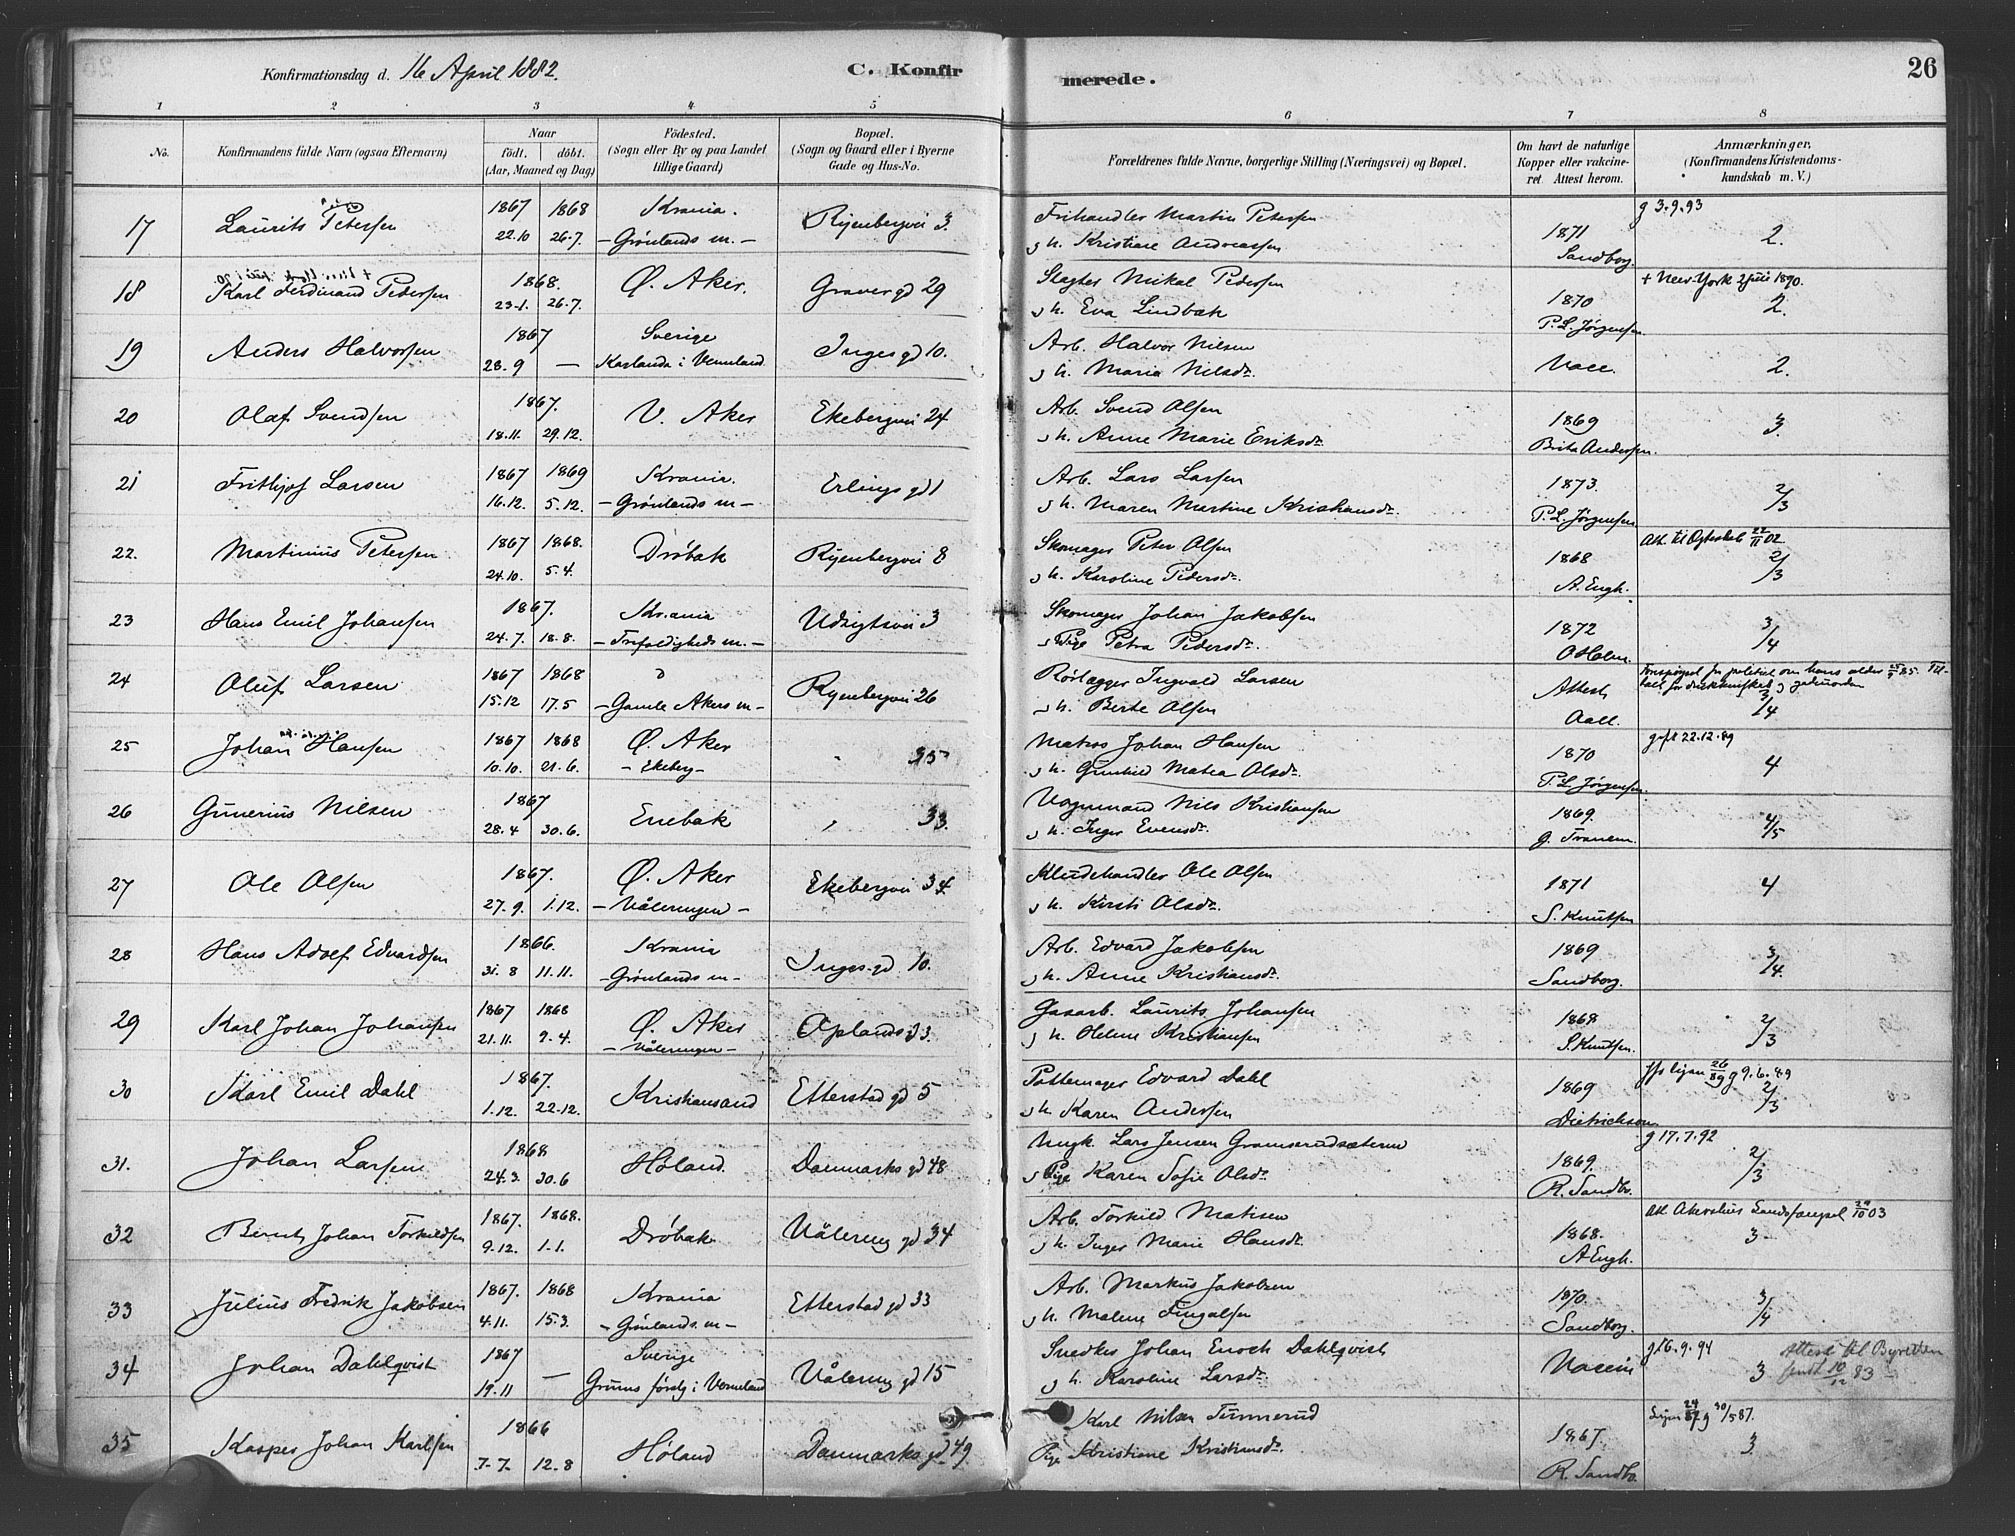 Konfirmationsdag d. 16 April 1882.
C. Konfirmerede.
26
1 2 3 4 5 6 7 8
No. Konfirmandens fulde Navn (ogsaa Efternavn) Naar født. døbt. (Aar, Maaned og Dag) Fødested. (Sogn eller By og paa Landet tillige Gaard) Bopæl. (Sogn og Gaard eller i Byerne Gade og Hus-No. Forældrenes fulde Navne, borgerlige Stilling (Næringsvei) og Bopæl. Om havt de naturlige Kopper eller vakcineret Attest herom. Anmærkninger. (Konfirmandens Kristendomskundskab m. V.)
17 Laurits Petersen 1867 1868 Krania. Ryenbergvei 3. Frihandler Martin Petersen g 3.9.93
22.10 26.7. – Grønlands m. – & h. Kristiane Andreassen 1871 Sandborg. 2.
18 Karl Ferdinand Pedersen 1868. Ø. Aker. Graver gd 29 Slagter Mikal Pedersen + New-York 2 juli 1890.
23.1. 26.7. & h. Eva Lindbæk 1870 P. L. Jørgensen 2.
19 Anders Halvorsen 1867 Sverige Inges gd 10. Arb. Halvor Nilsen
28.9 — Karlanda i Vermland & h. Maria Nilsdr. Vacc. 2.
20 Olaf Svendsen 1867. V. Aker Ekebergvei 24 Arb. Svend Olsen
18.11. 29.12. & h. Anne Marie Eriksdr. 1869 Brita Andersen. 3.
21 Frithjof Larsen 1867 1869 Krania. Erlings gd 1 Arb. Lars Larsen
16.12. 5.12. – Grønlands m – & h. Maren Martine Kristiansdr. 1873. P. L. Jørgensen 2/3
22. Martinius Petersen 1867 1868. Drøbak Ryenbergvei 8 Skomager Peter Olsen Att. til 22/11 02
24.10. 5.4. & h. Karoline Pedersdr. 1868 A. Engh. 2/3
23 Hans Emil Johansen 1867. Krania Udsigtsvei 3 Skomager Johan Jakobsen
24.7. 18.8. – Trefoldigheds m. – & Pige Petra Pedersdr. 1872 O Holm. 3/4
24 Oluf Larsen 1867 1868 Ryenbergvei 26 Rørlægger Ingvald Larsen Forespørgsel fra politiet om hans alder
15.12 17.5 – Gamle Akers m – & h. Berte Olsen Attest Aall. 3/4
25 Johan Hansen 1867 1868 Ø. Aker 35 Matros Johan Hansen gift 22.12.89
10.10. 21.6. – Ekeberg – & h. Gunhild Matea Olsdr. 1870 P. L. Jørgensen 4
26 Gunerius Nilsen 1867 Enebak 33. Vognmand Nils Kristiansen
28.4 30.6. & h. Inger Evensdr. 1869. G. Tranem 4/5
27 Ole Olsen 1867. Ø. Aker Ekebergvei 34 Kludehandler Ole Olsen
27.9. 1.12. – Vålerengen – & h. Kirsti Olsdr. 1871 S. Knutsen 4
28 Hans Adolf Edvardsen 1866. Krania Inges gd 10. Arb. Edvard Jakobsen
31.8 11.11. Grønlands m – & h. Anne Kristiansdr. 1869 Sandborg. 3/4.
29 Karl Johan Johansen 1867 1868 Ø. Aker Oplands 33. Gasarb. Laurits Johansen
21.11. 9.4. – Vålerengen – & h. Helene Kristiansen 1868 S. Knutsen. 2/3
30 Karl Emil Dahl 1867. Kristiansand Etterstad gd 5 Pottemager Edvard Dahl 26/5 89 g 9.6.89
1.12. 22.12. & h. Karen Andersen 1869 Dietrichson 2/3
31. Johan Larsen 1868 Høland. Danmarks gd 48 Ungk. Lars Jensen Gramserudsæteren g 17.7.92
24.3. 30.6 & Pige Karen Sofie Olsdr. 1869. R. Sandbo. 2/3
32 Bernt Johan Torkildsen 1867. 1868. Drøbak Vålereng gd 34 Arb. Torkild Matisen Att. Akershus Landsfængsel 29/10 03
9.12. 1.1. & h. Inger Marie Hansdr. 1868. A Engh. 3
33 Julius Fredrik Jakobsen 1867. 1868 Krania Etterstad gd 33 Arb. Markus Jakobsen
4.11. 15.3. – Grønlands m – & h. Malene Fingalsen 1870. Sandborg. 3/4
34 Johan Dahlqvist 1867 Sverige Vålereng gd 15 Snedker Johan Enoch Dahlqvist g 16.9.94 Attest til Byretten
19.11 — Grums førslg i Vermland & h. Karoline Larsdr. Vaccin 3 sendt 10/12 83
35 Kasper Johan Karlsen 1866 Høland Danmarks gd 49 Karl Nilsen Tunnerud Lysn 24/4 87. g 30/5 87.
7.7. 12.8 Pige Kristiane Kristiansdr. 1867. R. Sandbo. 3